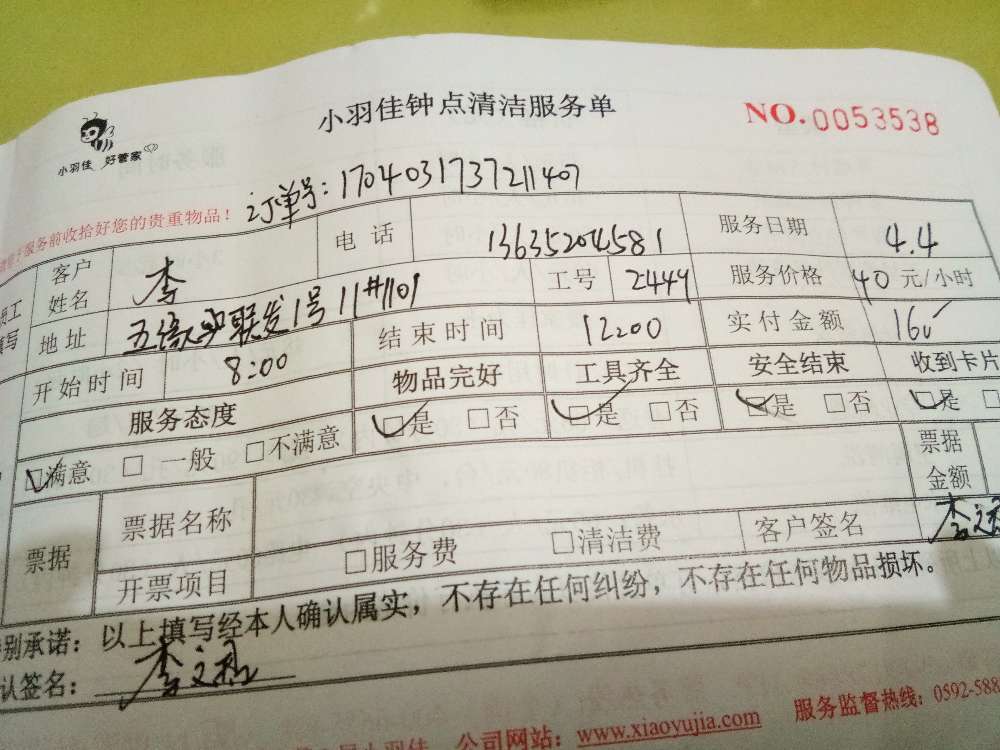 小羽佳钟点清洁服务单
NO.0053538
小羽佳 好管家
订单号:1704031737211407
服务前收拾好您的贵重物品!
客户姓名 李 电话 13635204581 服务日期 4.4
地址 联发1号11#1101 工号 2449 服务价格 40元/小时
开始时间 8:00 结束时间 12:00 实付金额 160
服务态度 物品完好 工具齐全 安全结束 收到卡片
满意 一般 不满意 是 否 是 否 是 否 是
票据 票据名称 票据金额
开票项目 服务费 清洁费 客户签名 李文
别承诺:以上填写经本人确认属实,不存在任何纠纷,不存在任何物品损坏。
认签名: 李文
小羽佳 公司网站:www.xiaoyujia.com 服务监督热线:0592-588